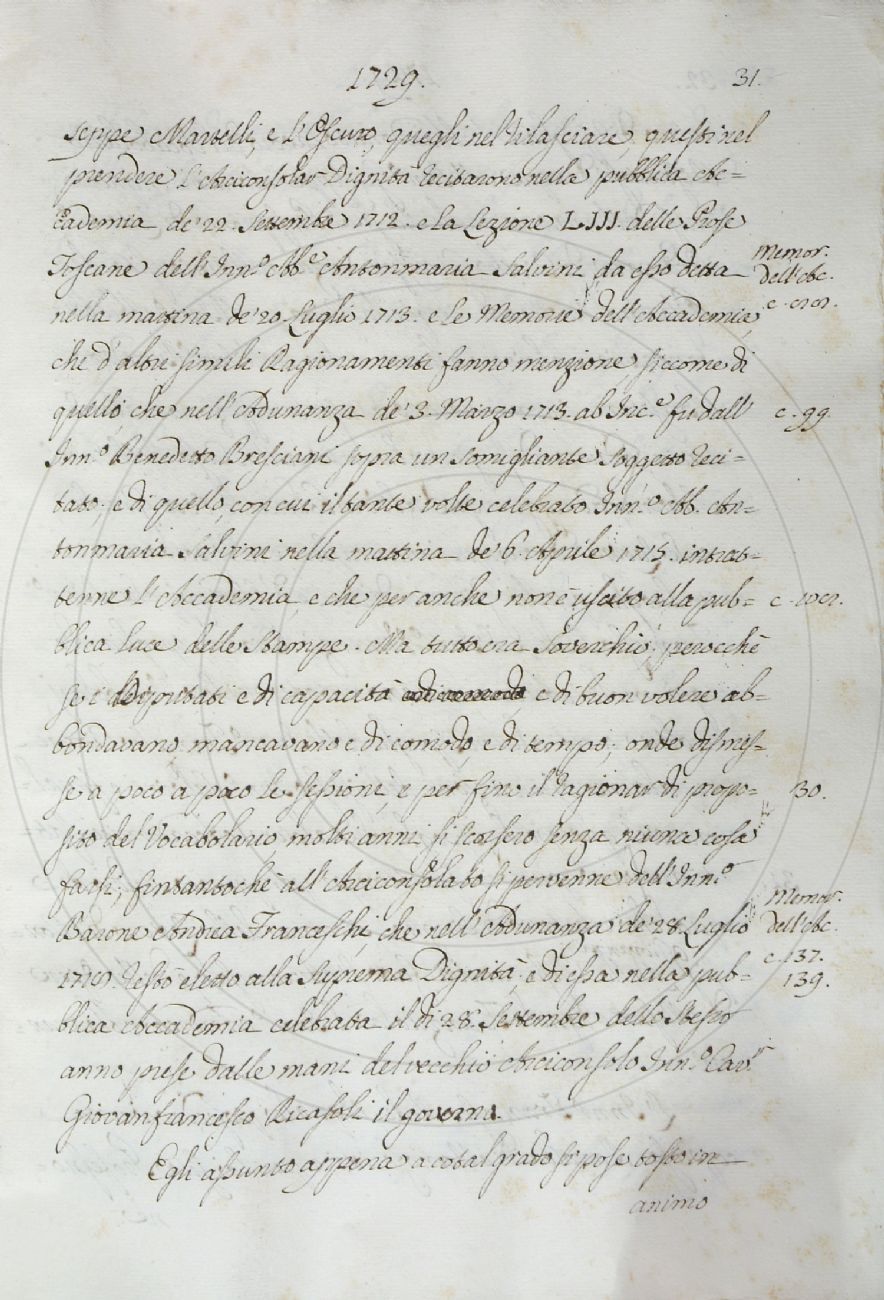 1729.
31.
seppe Martelli, e l'Oscuro, quegli nel rilasciare, questi nel
prendere l'Arciconsolar Dignità recitarono nella pubblica Ac=
cademia de' 22. Settembre 1712. e la Lezione LIII. delle Prose
Toscane dell'Inn.º Ab.ᵉ Antonmaria Salvini, da esso detta
Memor.
dell'Ac.
nella mattina de' 20. Luglio 1713. e le Memorie dell'Accademia,
che d'altri simili Ragionamenti fanno menzione, siccome di
quello, che nell'Adunanza de' 3. Marzo 1713. ab Inc.ᵉ fu dall'
c. 99.
Inn.º Benedetto Bresciani sopra un somigliante soggetto reci=
tato; e di quello, con cui il tante volte celebrato Inn.º Ab. An=
tonmaria Salvini nella mattina de' 6. Aprile 1715. intrat=
tenne l'Accademia, e che per anche non è uscito alla pub=
c.
blica luce delle Stampe. Ma tutto era soverchio; perocchè
se i Deputati e di capacità e di buon volere ab=
bondavano mancavano e di comodo, e di tempo; onde dismes=
se a poco a poco le sessioni, e per fino il ragionar di propo=
30.
sito del Vocabolario molti anni si scorsero senza niuna cosa
farsi; fintantochè all'Arciconsolato si pervenne dell'Inn.º
Barone Andrea Franceschi, che nell'Adunanza de' 28. Luglio
Memor.
dell'Ac.
c. 137.
139.
1719. restò eletto alla Suprema Dignità; e di essa nella pub=
blica Accademia celebrata il dì 28. Settembre dello stesso
anno prese dalle mani del vecchio Arciconsolo Inn.º Cav.ʳ
Giovanfrancesco Ricasoli il governo.
Egli assunto appena a cotal grado si pose tosto in
animo